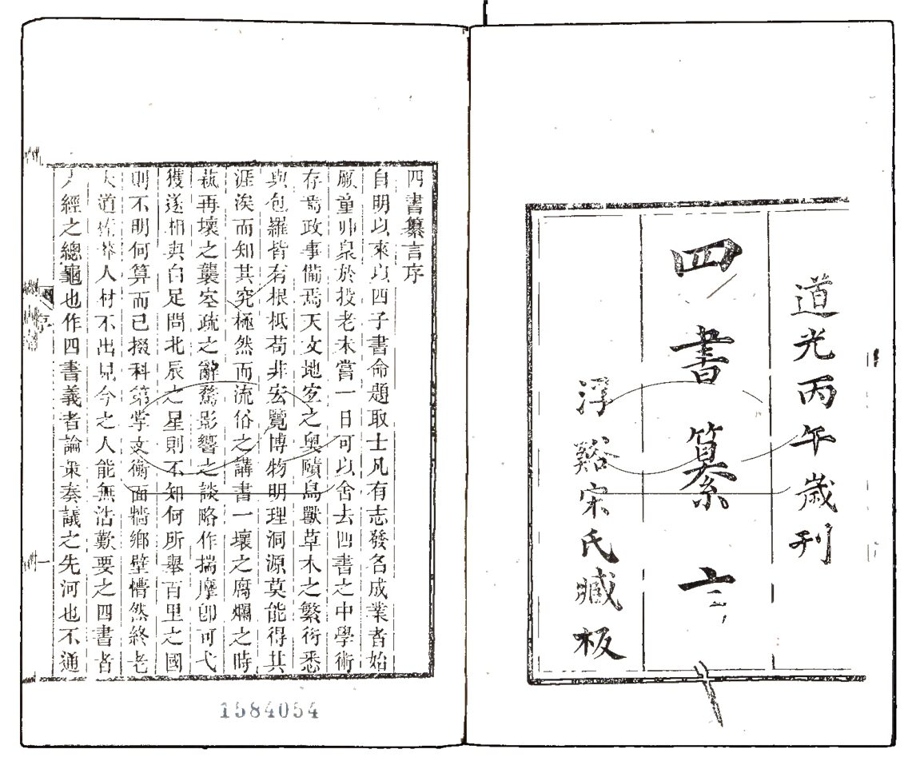 道光丙午歲刊
四書纂言
浮谿宋氏臧板
四書纂言序
自明以來以四子書命題取士凡有志發名成業者始
厥童丱泉於投老未嘗一日可以舍去四書之中學術
存焉政事備焉天文地之奧賾鳥獸草木之繁衍悉
與包羅皆有根柢苟非宏覽博物明理洞源莫能得其
涯涘而知其究極然而流俗之講書一壞之腐爛之時
蓺再壞之襲空疏之辭騖影響之談略作揣摩卽可弋
獲遂相與白足問北辰之星則不知何所舉百里之國
則不明何算而已掇科第掌文衡面牆鄉壁懵然終老
大道榛莽人材不出見今之人能無浩歎要之四書者
六經之總龜也作四書義者論策奏議之先河也不通
序
一
1584054